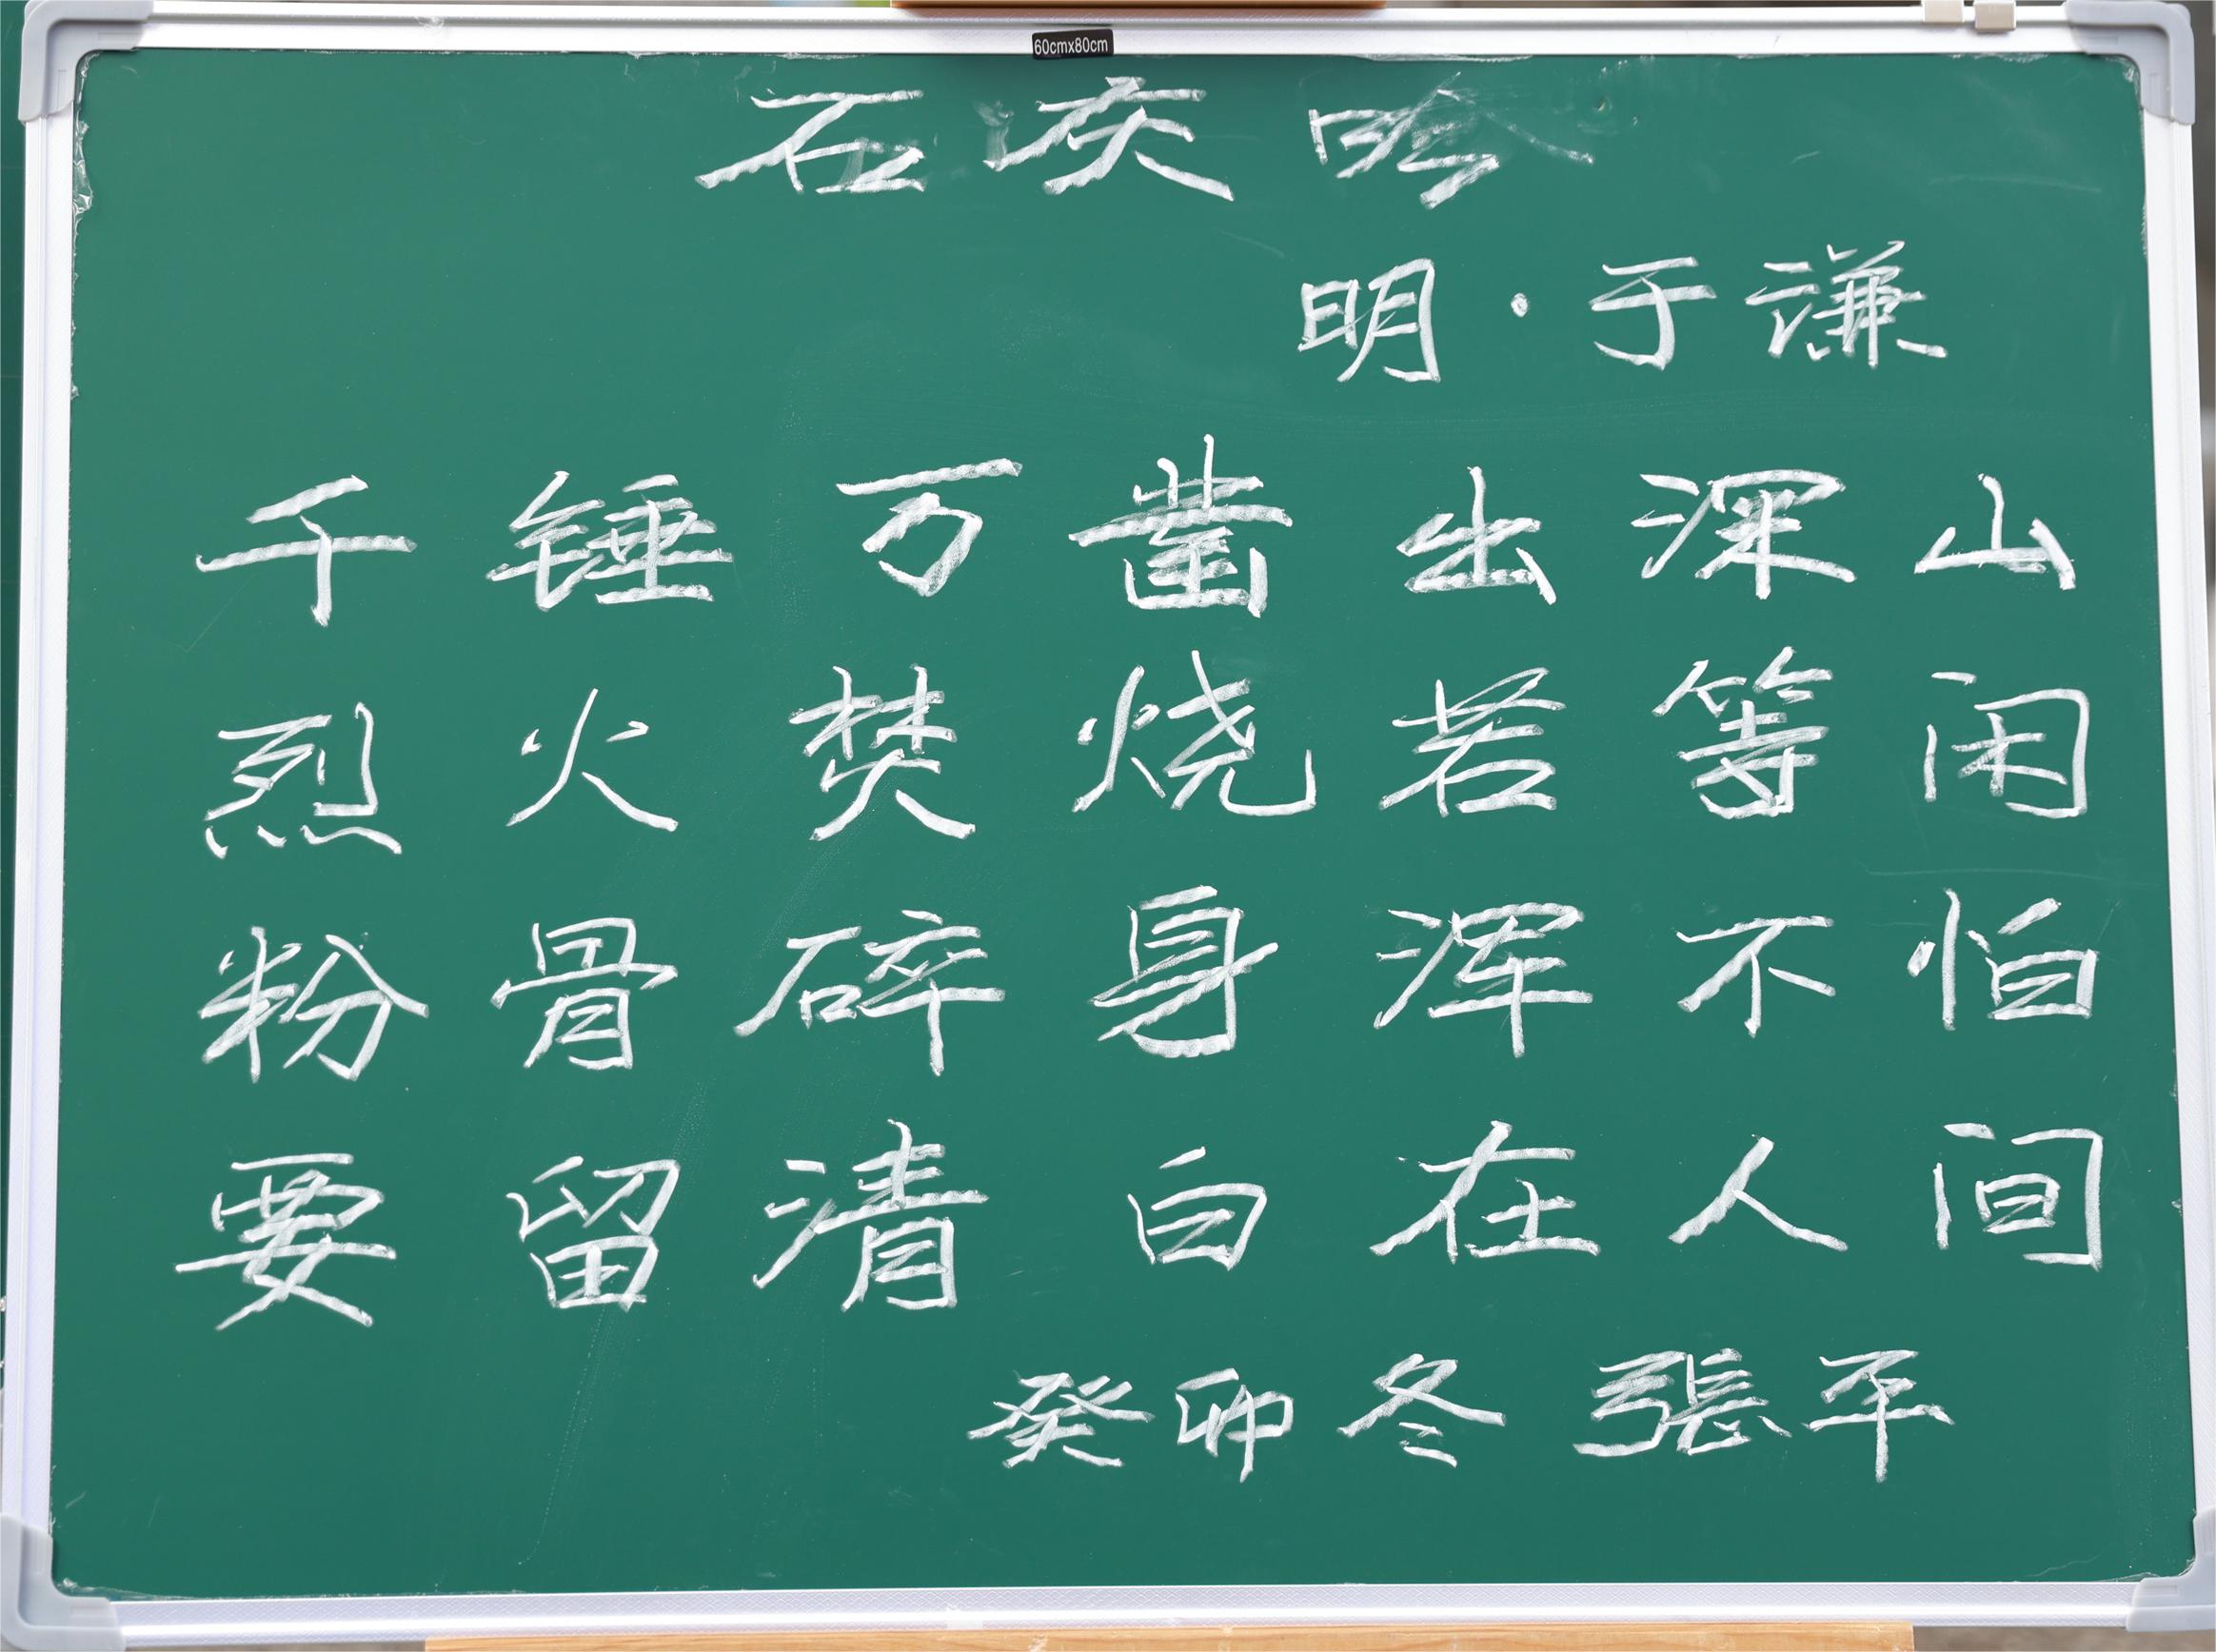 60cmx80cm
石灰吟
明·于謙
千锤万凿出深山
烈火焚烧若等闲
粉骨碎身浑不怕
要留清白在人间
癸卯冬 張平